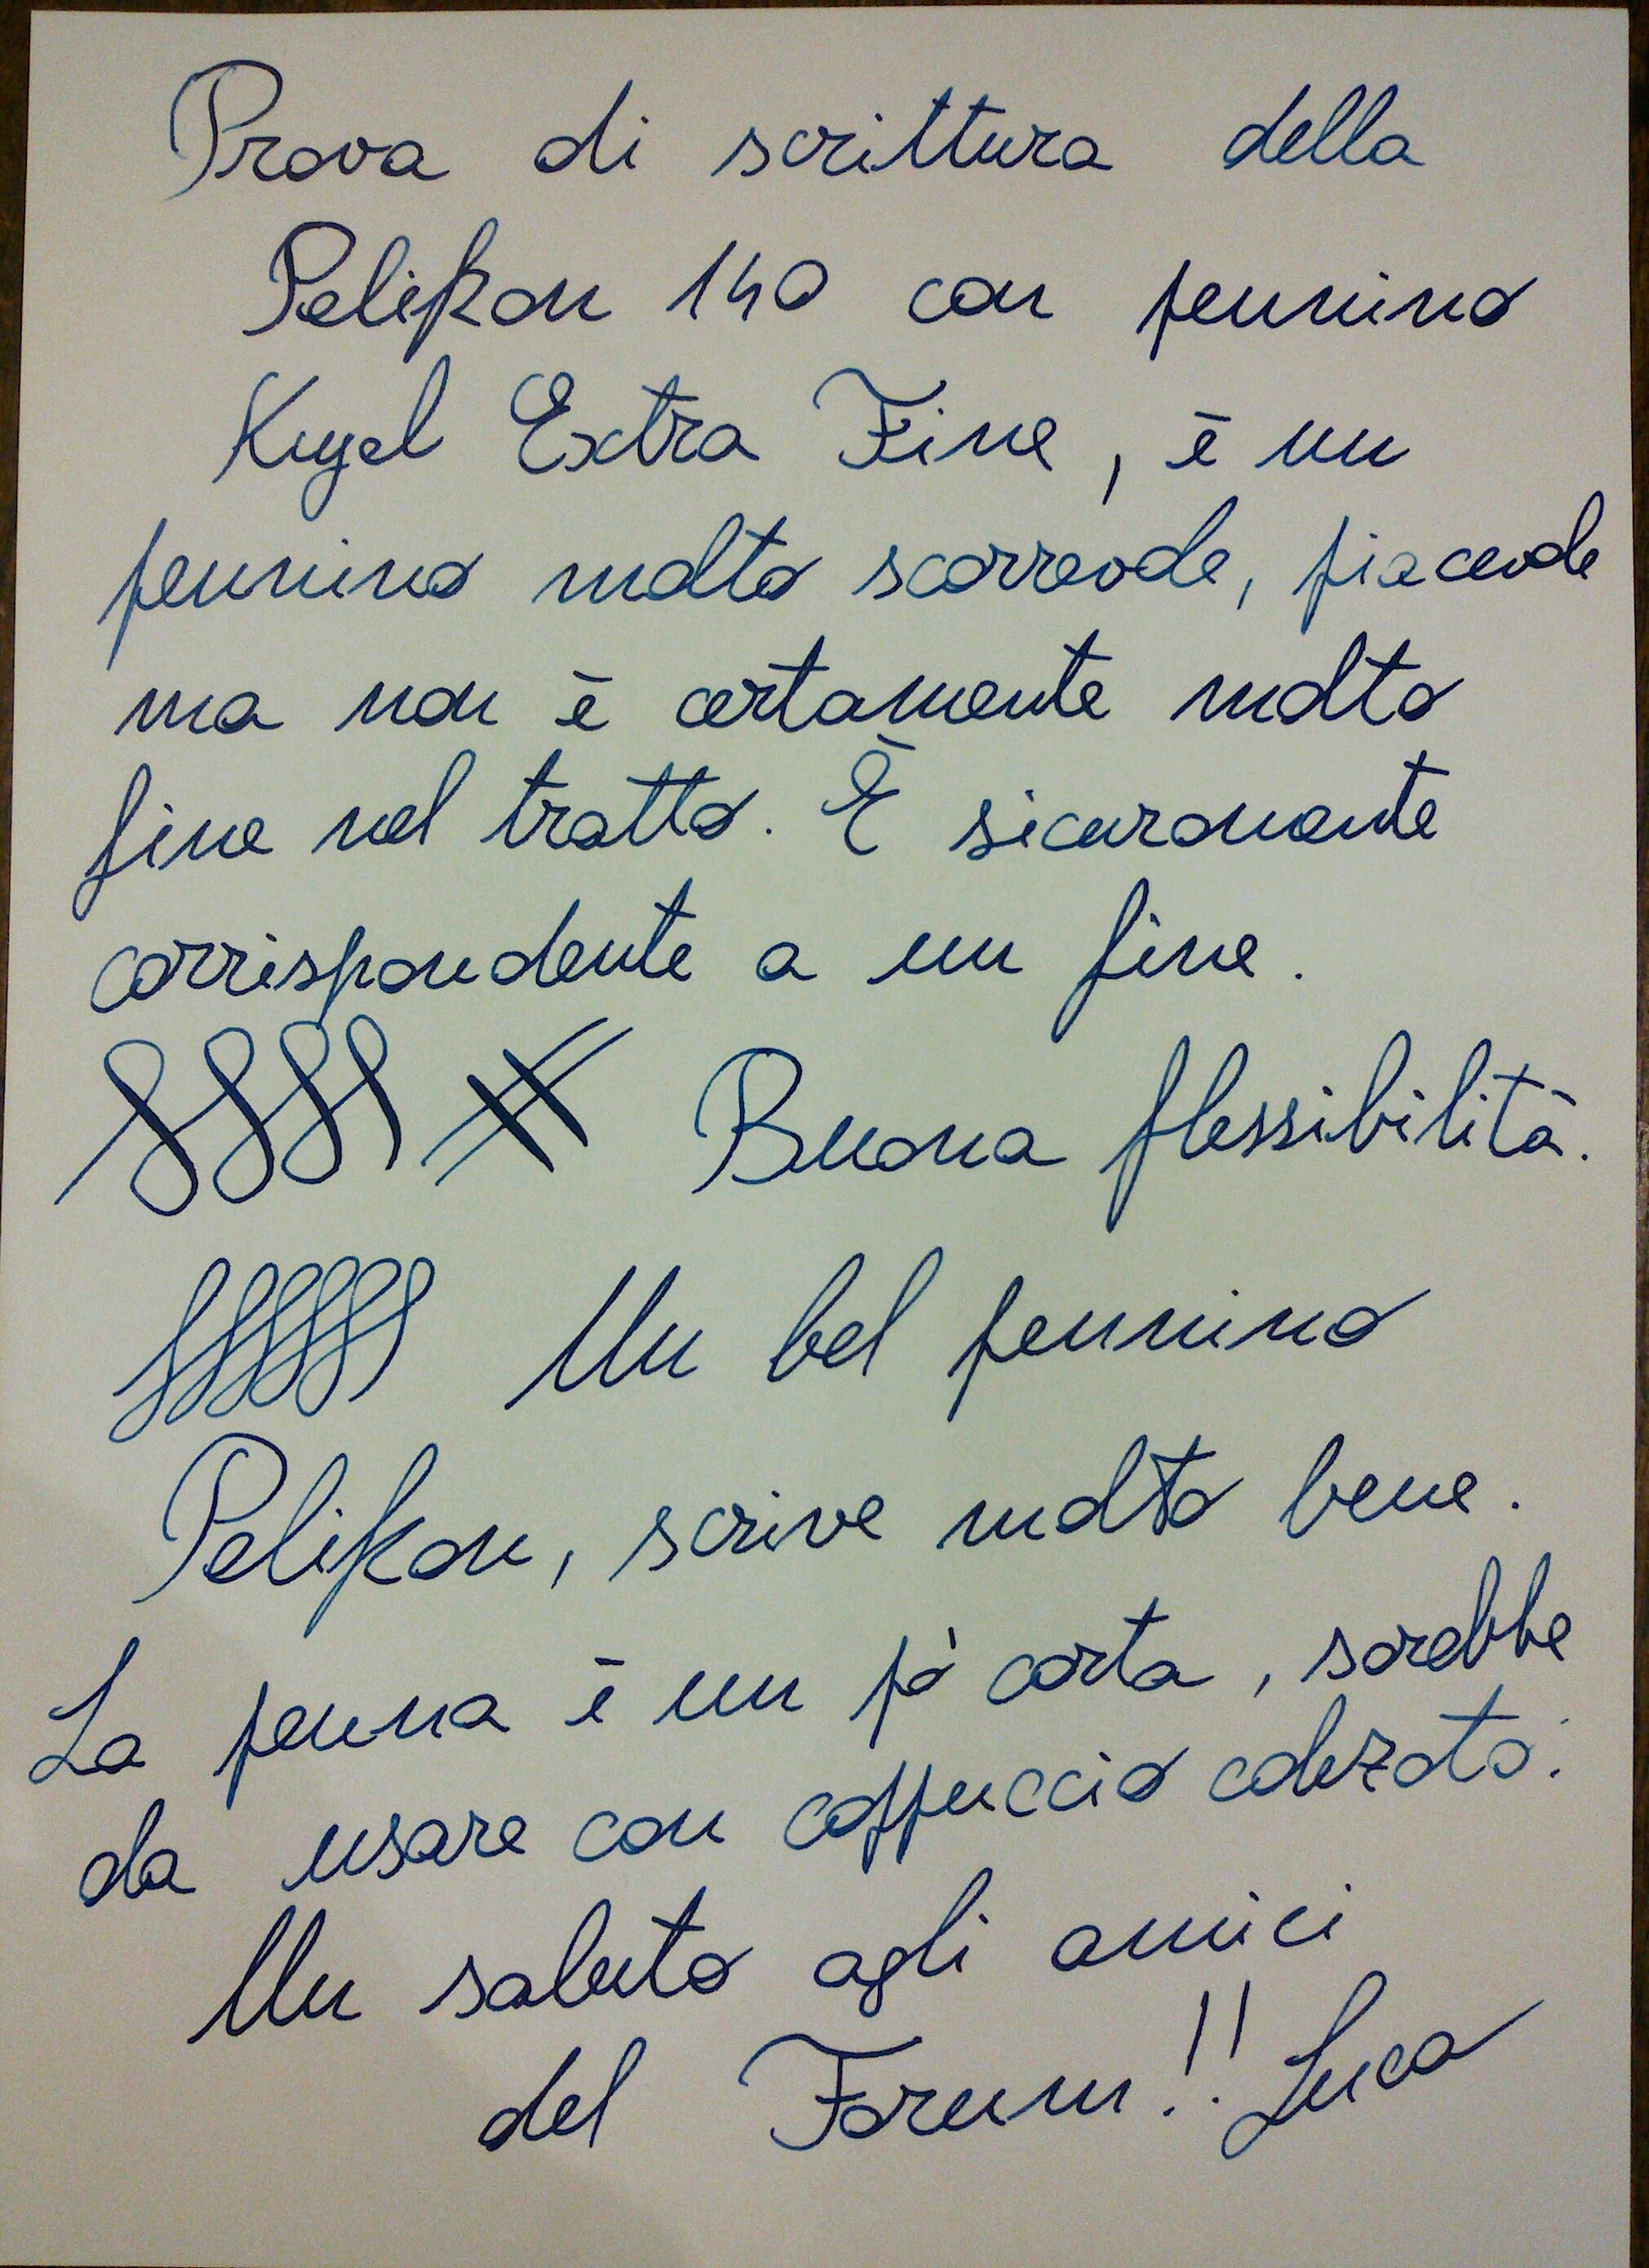 Prova di scrittura della
Pelikan 140 con pennino
Kugel Extra Fine, è un
pennino molto scorrevole, piacevole
ma non è certamente molto
fine nel tratto. È sicuramente
corrispondente a un fine.
Buona flessibilità.
Un bel pennino
Pelikan, scrive molto bene.
La penna è un pò corta, sarebbe
da usare con cappuccio calzato.
Un saluto agli amici
del Forum!! Luca